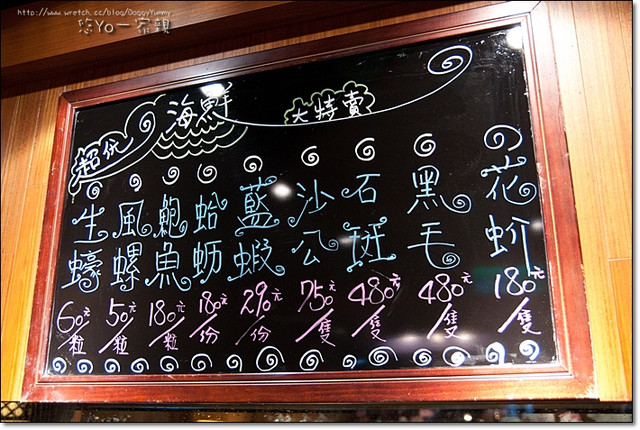 http://www.wretch.cc/blog/DoggyYummy
悠Yo一家親
超低
海鮮
大特賣
生蠔 60元/粒
風螺 50元/粒
鮑魚 180元/粒
蛤蛎 180元/份
藍蝦 290元/份
沙公 750元/隻
石斑 480元/隻
黑毛 480元/隻
花蚧 180元/隻